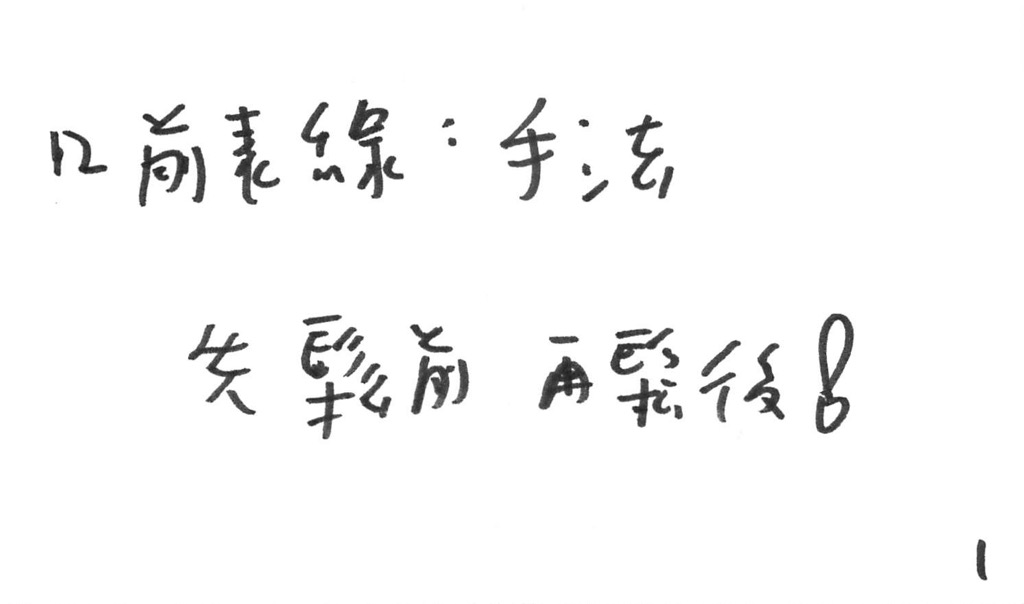 12 前表線：手法
先鬆前 再鬆後！
1